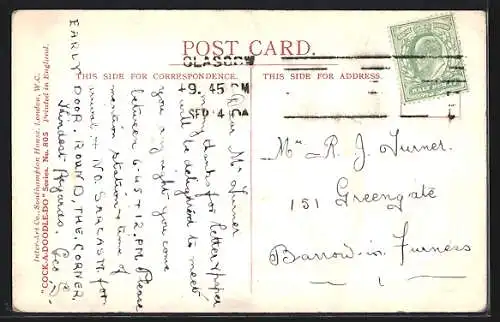 POST CARD.
GLASGOW
THIS SIDE FOR CORRESPONDENCE.
THIS SIDE FOR ADDRESS.
9.45 PM
SEP 4
HALFPENNY
Dear Mr Turner
many thanks for letter & paper
will be delighted to meet
you any night you come
between 6-45 & 12.P.M. Please
mention station & time of
arrival & NO. SARCASM. for
EARLY DOOR. ROUND, THE. CORNER.
Kindest Regards. Geo
Mr R. J Turner.
151 Greengate
Barrow-in-Furness
Inter-Art Co., Southampton House, London, W.C.
"COCK-A-DOODLE-DO" Series. No. 805 Printed in England.